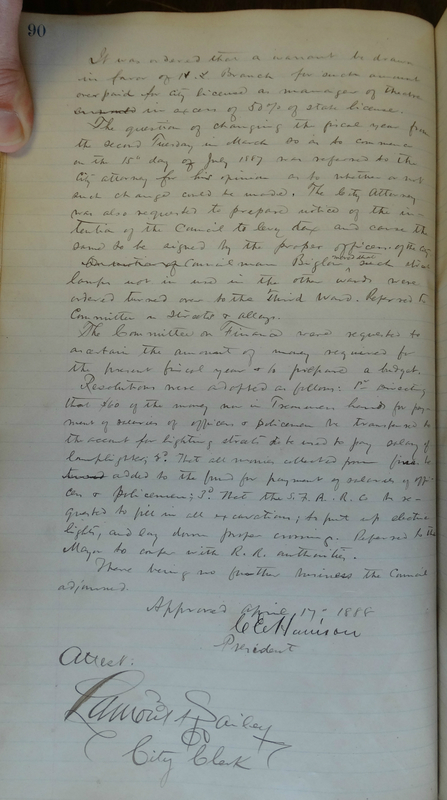 90
It was ordered that a warrant be drawn
in favor of N. L. Branch for such amount
overpaid for City license as manager of theatre
in excess of 50% of state license.
The question of changing the fiscal year from
the second Tuesday in March so as to commence
on the 15th day of July 1887 was referred to the
City attorney for his opinion as to whether or not
such change could be made. The City Attorney
was also requested to prepare notice of the in-
tention of the Council to levy tax and cause the
same to be signed by the proper officers of the City
On motion of Councilman Biglow such street
lamps not in use in the other wards were
ordered turned over to the third ward. Referred to
Committee on Streets & alleys.
The Committee on Finance were requested to
ascertain the amount of money required for
the present fiscal year & to prepare a budget.
Resolutions were adopted as follows: 1st directing
that $60 of the money now in Treasurers hands for pay-
ment of salaries of officers & policemen be transferred to
the account for lighting streets to be used to pay salary of
lamplighter, 2d. That all monies collected from fines be
added to the fund for payment of salaries of offi-
cers & policemen; 3d. That the S.F.A. R. Co be re-
quested to fill in all excavations, to put up electric
lights, and lay down proper crossing. Referred to the
Mayor to confer with R.R. authorities.
There being no further business the Council
adjourned.
Approved April 17th 1888
C C Harrison
President
Attest:
Bailey
City Clerk